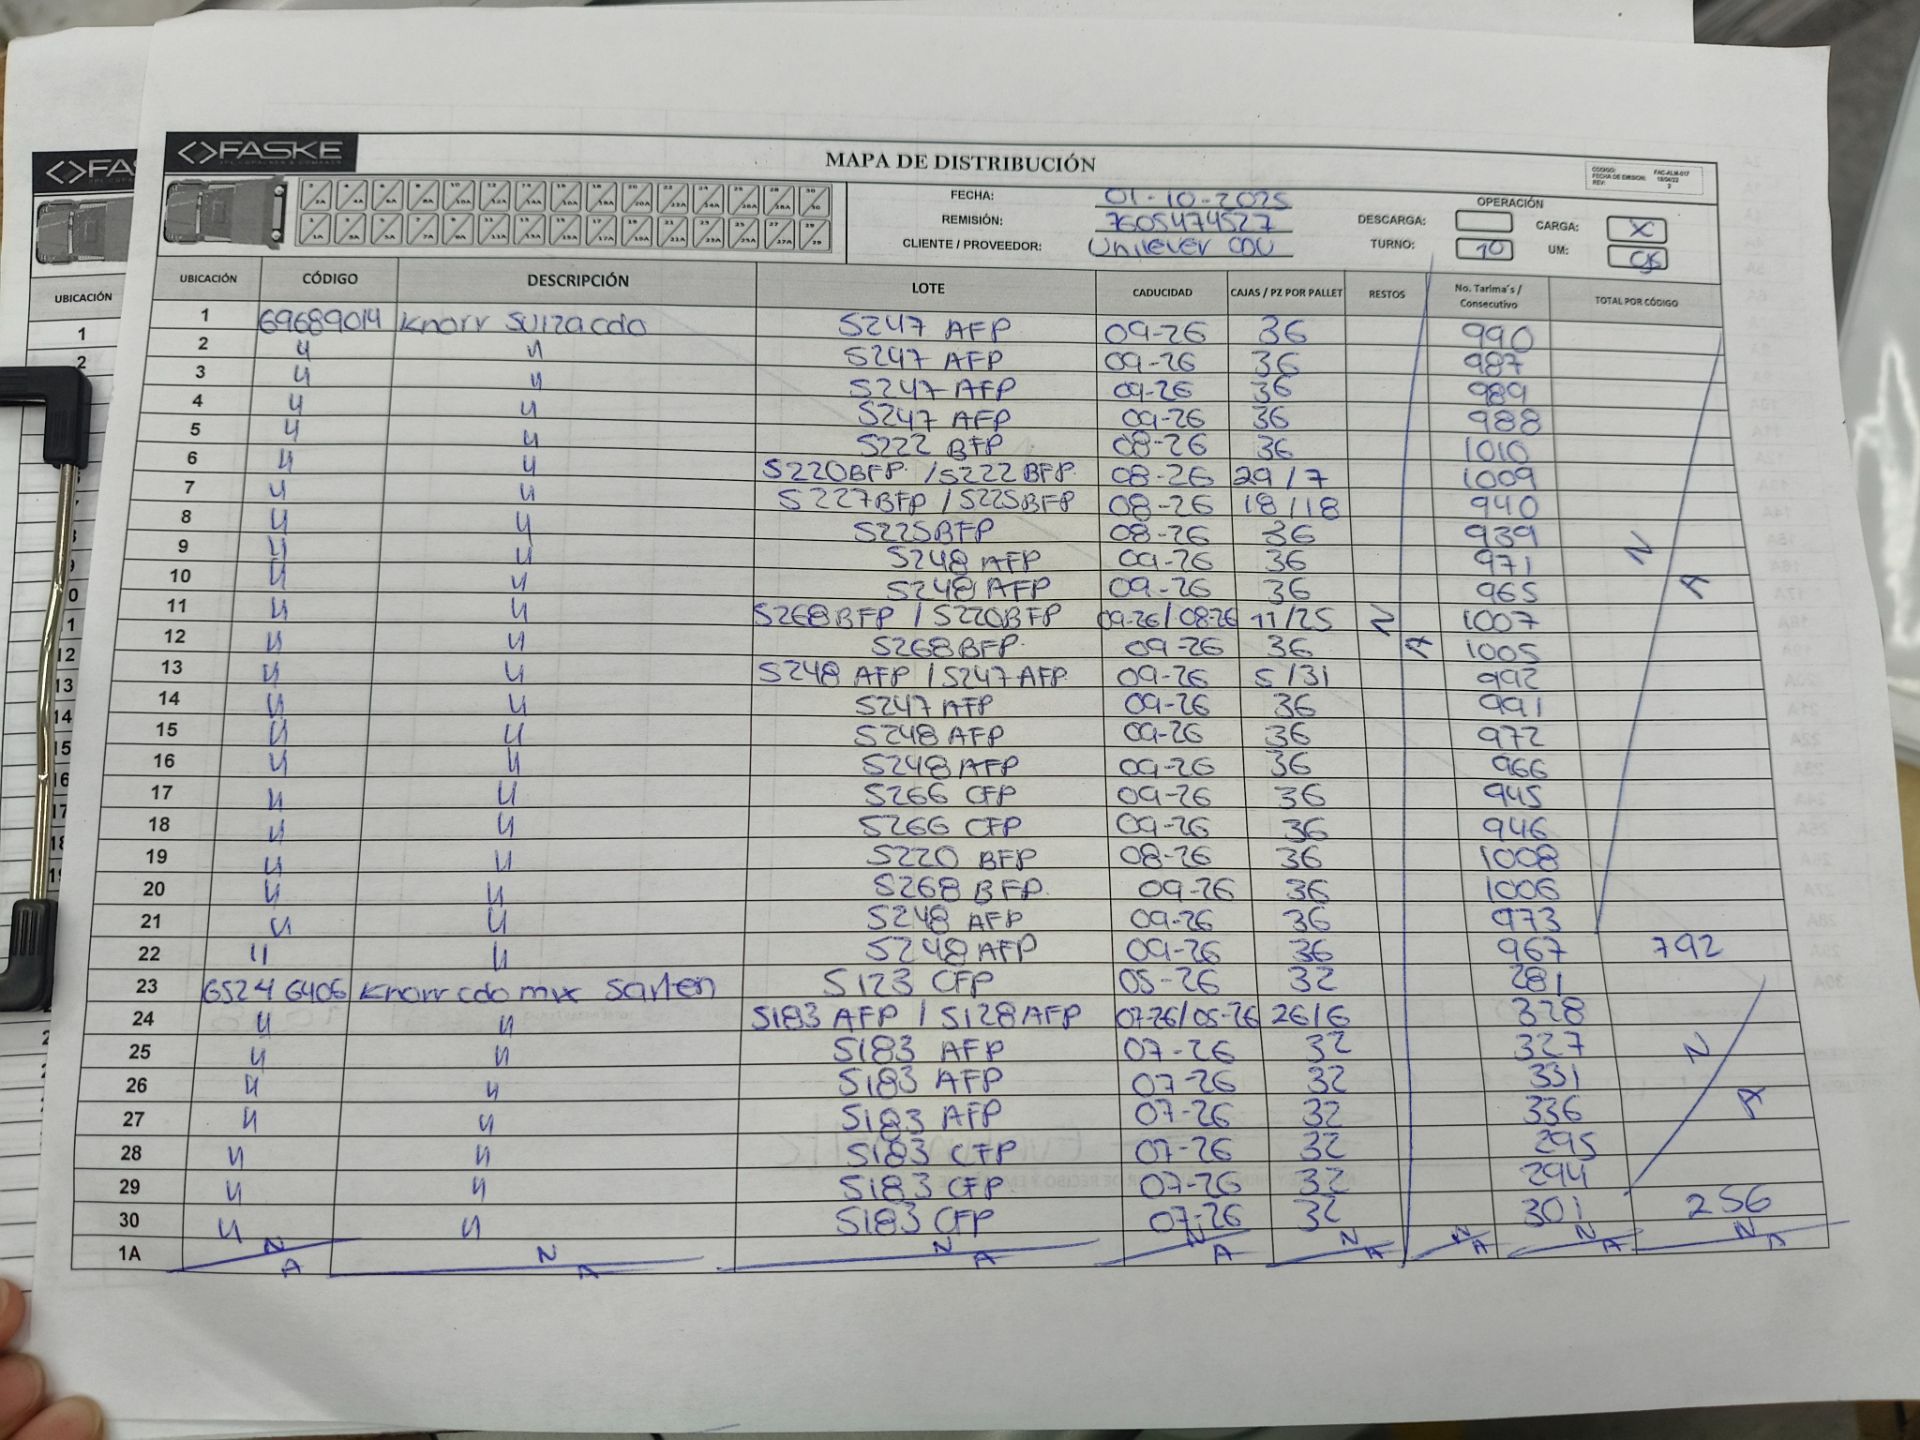 <>FASKE
MAPA DE DISTRIBUCIÓN
CÓDIGO: FAC-ALM-017
FECHA DE EMISION: 
REV: 2
FECHA: 01-10-2025
REMISIÓN: 7605474527
CLIENTE / PROVEEDOR: Unilever CDU
OPERACIÓN
DESCARGA: CARGA: X
TURNO: 10 UM: CJS
UBICACIÓN CÓDIGO DESCRIPCIÓN LOTE CADUCIDAD CAJAS / PZ POR PALLET RESTOS No. Tarima´s / Consecutivo TOTAL POR CÓDIGO
1 69689014 Knorr Suiza cdo S247 AFP 09-26 36 990
2 " " S247 AFP 09-26 36 987
3 " " S247 AFP 09-26 36 989
4 " " S247 AFP 09-26 36 988
5 " " S222 BFP 08-26 36 1010
6 " " S220BFP. / S222 BFP. 08-26 29 / 7 1009
7 " " S227BFP / S225BFP 08-26 18 / 18 940
8 " " S225BFP 08-26 36 939
9 " " S248 AFP 09-26 36 971
10 " " S248 AFP 09-26 36 965
11 " " S268BFP / S220BFP 09-26/08-26 11/25 N 1007
12 " " S268BFP. 09-26 36 A 1005
13 " " S248 AFP / S247 AFP. 09-26 5 / 31 992
14 " " S247 AFP 09-26 36 991
15 " " S248 AFP 09-26 36 972
16 " " S248 AFP 09-26 36 966
17 " " S266 CFP 09-26 36 945
18 " " S266 CFP 09-26 36 946
19 " " S220 BFP 08-26 36 1008
20 " " S268 BFP. 09-26 36 1006
21 " " S248 AFP 09-26 36 973
22 " " S248 AFP 09-26 36 967 792
23 65246406 Knorr cdo mix Sarten S123 CFP 05-26 32 281
24 " " S183 AFP / S128 AFP 07-26/05-26 26/6 328
25 " " S183 AFP 07-26 32 327
26 " " S183 AFP 07-26 32 331
27 " " S183 AFP 07-26 32 336
28 " " S183 CFP 07-26 32 295
29 " " S183 CFP 07-26 32 294
30 " " S183 CFP 07-26 32 301 256
1A N/A N/A N/A N/A N/A N/A N/A N/A